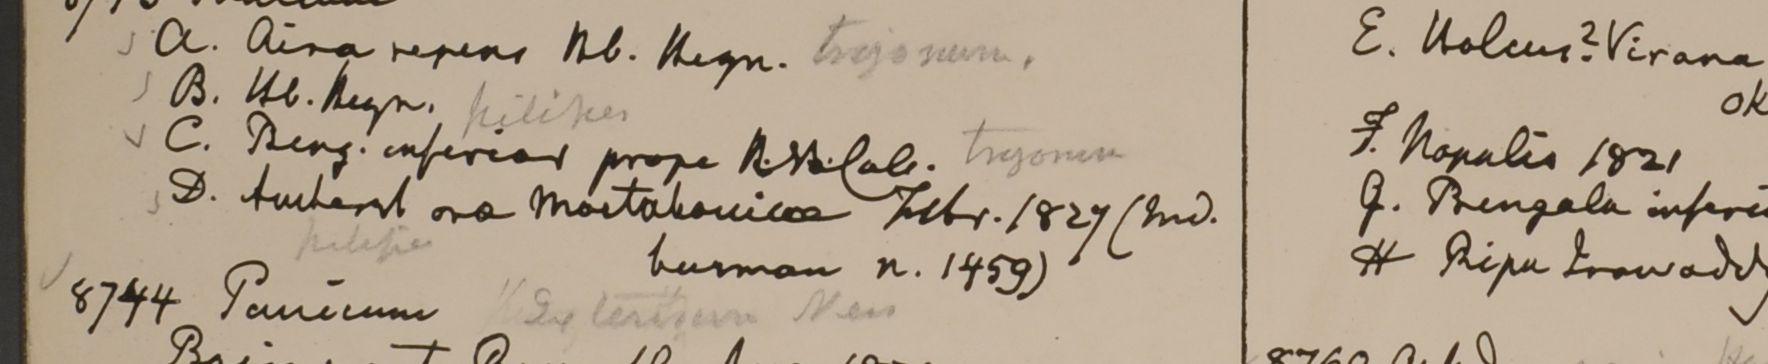 A. Aira repens Hb. Heyn. trigonum.
B. Hb. Heyn. pilipes
C. Beng. inferior prope Calc. trigonum
D. Amherst ora Martabanicae Febr. 1827 (Ind.
pilipes
burman n. 1459)
8744 Panicum Nees
E. Holcus? Virana
F. Napalia 1821
G. Bengala inferi
H Ripa Irawaddy